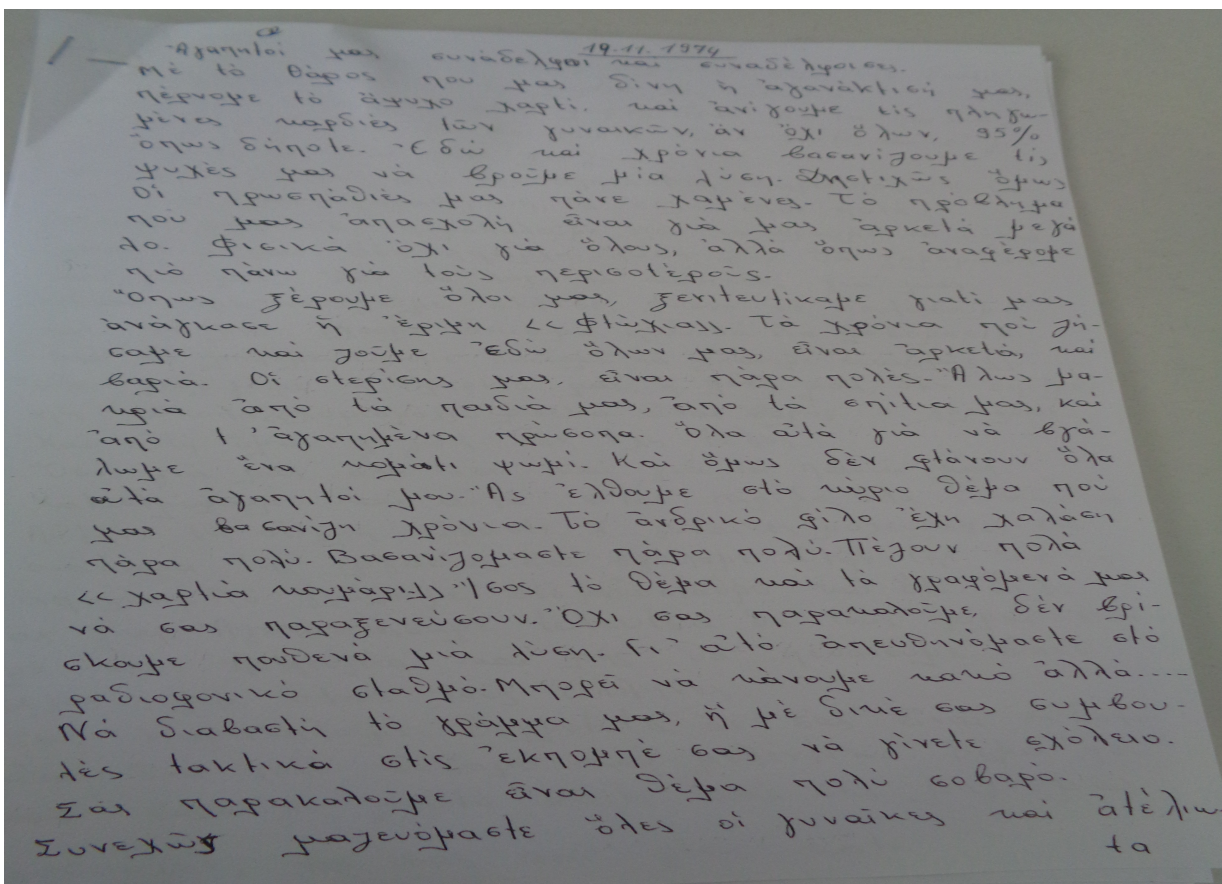 19.11.1974
Ἀγαπητοί μας συνάδελφοι καί συναδέλφοισες.
Μέ τό θάρος που μας δίνη ἡ ἀγανάκτισή μας,
πέρνομε τό ἄψυχο χαρτί. καί ἀνίγουμε τίς πληγω-
μένες καρδιές τῶν γυναικῶν, ἄν ὄχι ὅλων, 95%
ὅπως δήποτε. Ἐδώ καί χρόνια βασανίζουμε τίς
ψυχές μας νά βροῦμε μία λύση. Δηστιχῶς ὅμως
Οἱ πρωσπάθιές μας πάνε χαμένες. Τό πρόβλημα
πού μας ἀπασχολή εἶναι γιά μας ἀρκετά μεγά
λο. Φισικά ὄχι γιά ὅλους, ἀλλά ὅπως ἀναφέρομε
πιό πάνω γιά τούς περισοτέρους.
Ὅπως ξέρουμε ὅλοι μας, ξενιτευτίκαμε γιατί μας
ἀνάγκασε ἡ ἔριμη <<Φτώχια>>. Τά χρόνια πού ζή-
σαμε καί ζοῦμε ἐδώ ὅλων μας, εἶναι ἀρκετά, καί
βαριά. Οἱ στερίσης μας, εἶναι πάρα πολές. Ἄλως μα-
κριά ἀπό τά παιδιά μας, ἀπό τά σπίτια μας, καί
ἀπό τ' ἀγαπημένα πρόσοπα. Ὅλα αὐτά γιά νά βγά-
λωμε ἕνα κομάτι ψωμί. Καί ὅμως δέν φτάνουν ὅλα
αὐτά ἀγαπητοί μου. Ἄς ἔλθουμε στό κύριο θέμα πού
μας βασανίζη χρόνια. Τό ἀνδρικό φίλο ἔχη χαλάση
πάρα πολύ. Βασανίζομαστε πάρα πολύ. Πέζουν πολά
<<χαρτιά κουμάρι>> Ἴσος τό θέμα καί τά γραφόμενά μας
νά σας παραξενεύσουν. Ὄχι σας παρακαλοῦμε, δέν βρί-
σκουμε πουθενά μιά λύση. Γι' αὐτό ἀπευθηνόμαστε στό
ραδιοφονικό σταθμό. Μπορεῖ νά κάνουμε κακό ἀλλά....
Νά διαβαστή τό γράμμα μας, ἤ μέ δικέ σας συμβου-
λές τακτικά στίς ἐκπομπέ σας νά γίνετε σχόλειο.
Σάς παρακαλοῦμε εἶναι θέμα πολύ σοβαρό.
Συνεχῶς μαζευόμαστε ὅλες οἱ γυναίκες καί ἀτέλιω
τα